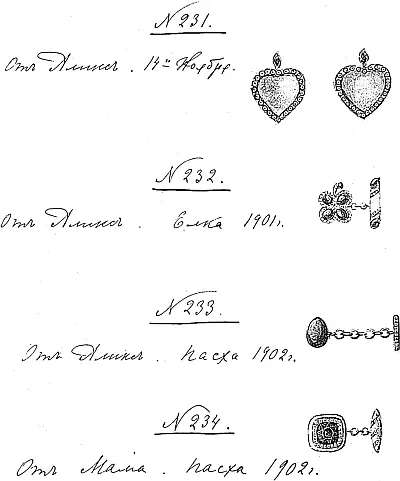 N 231.
Отъ Аликсъ. 14го Ноября.
N 232.
Отъ Аликсъ. Елка 1901г.
N 233.
Отъ Аликсъ. Пасха 1902г.
N 234.
Отъ Мама. Пасха 1902г.